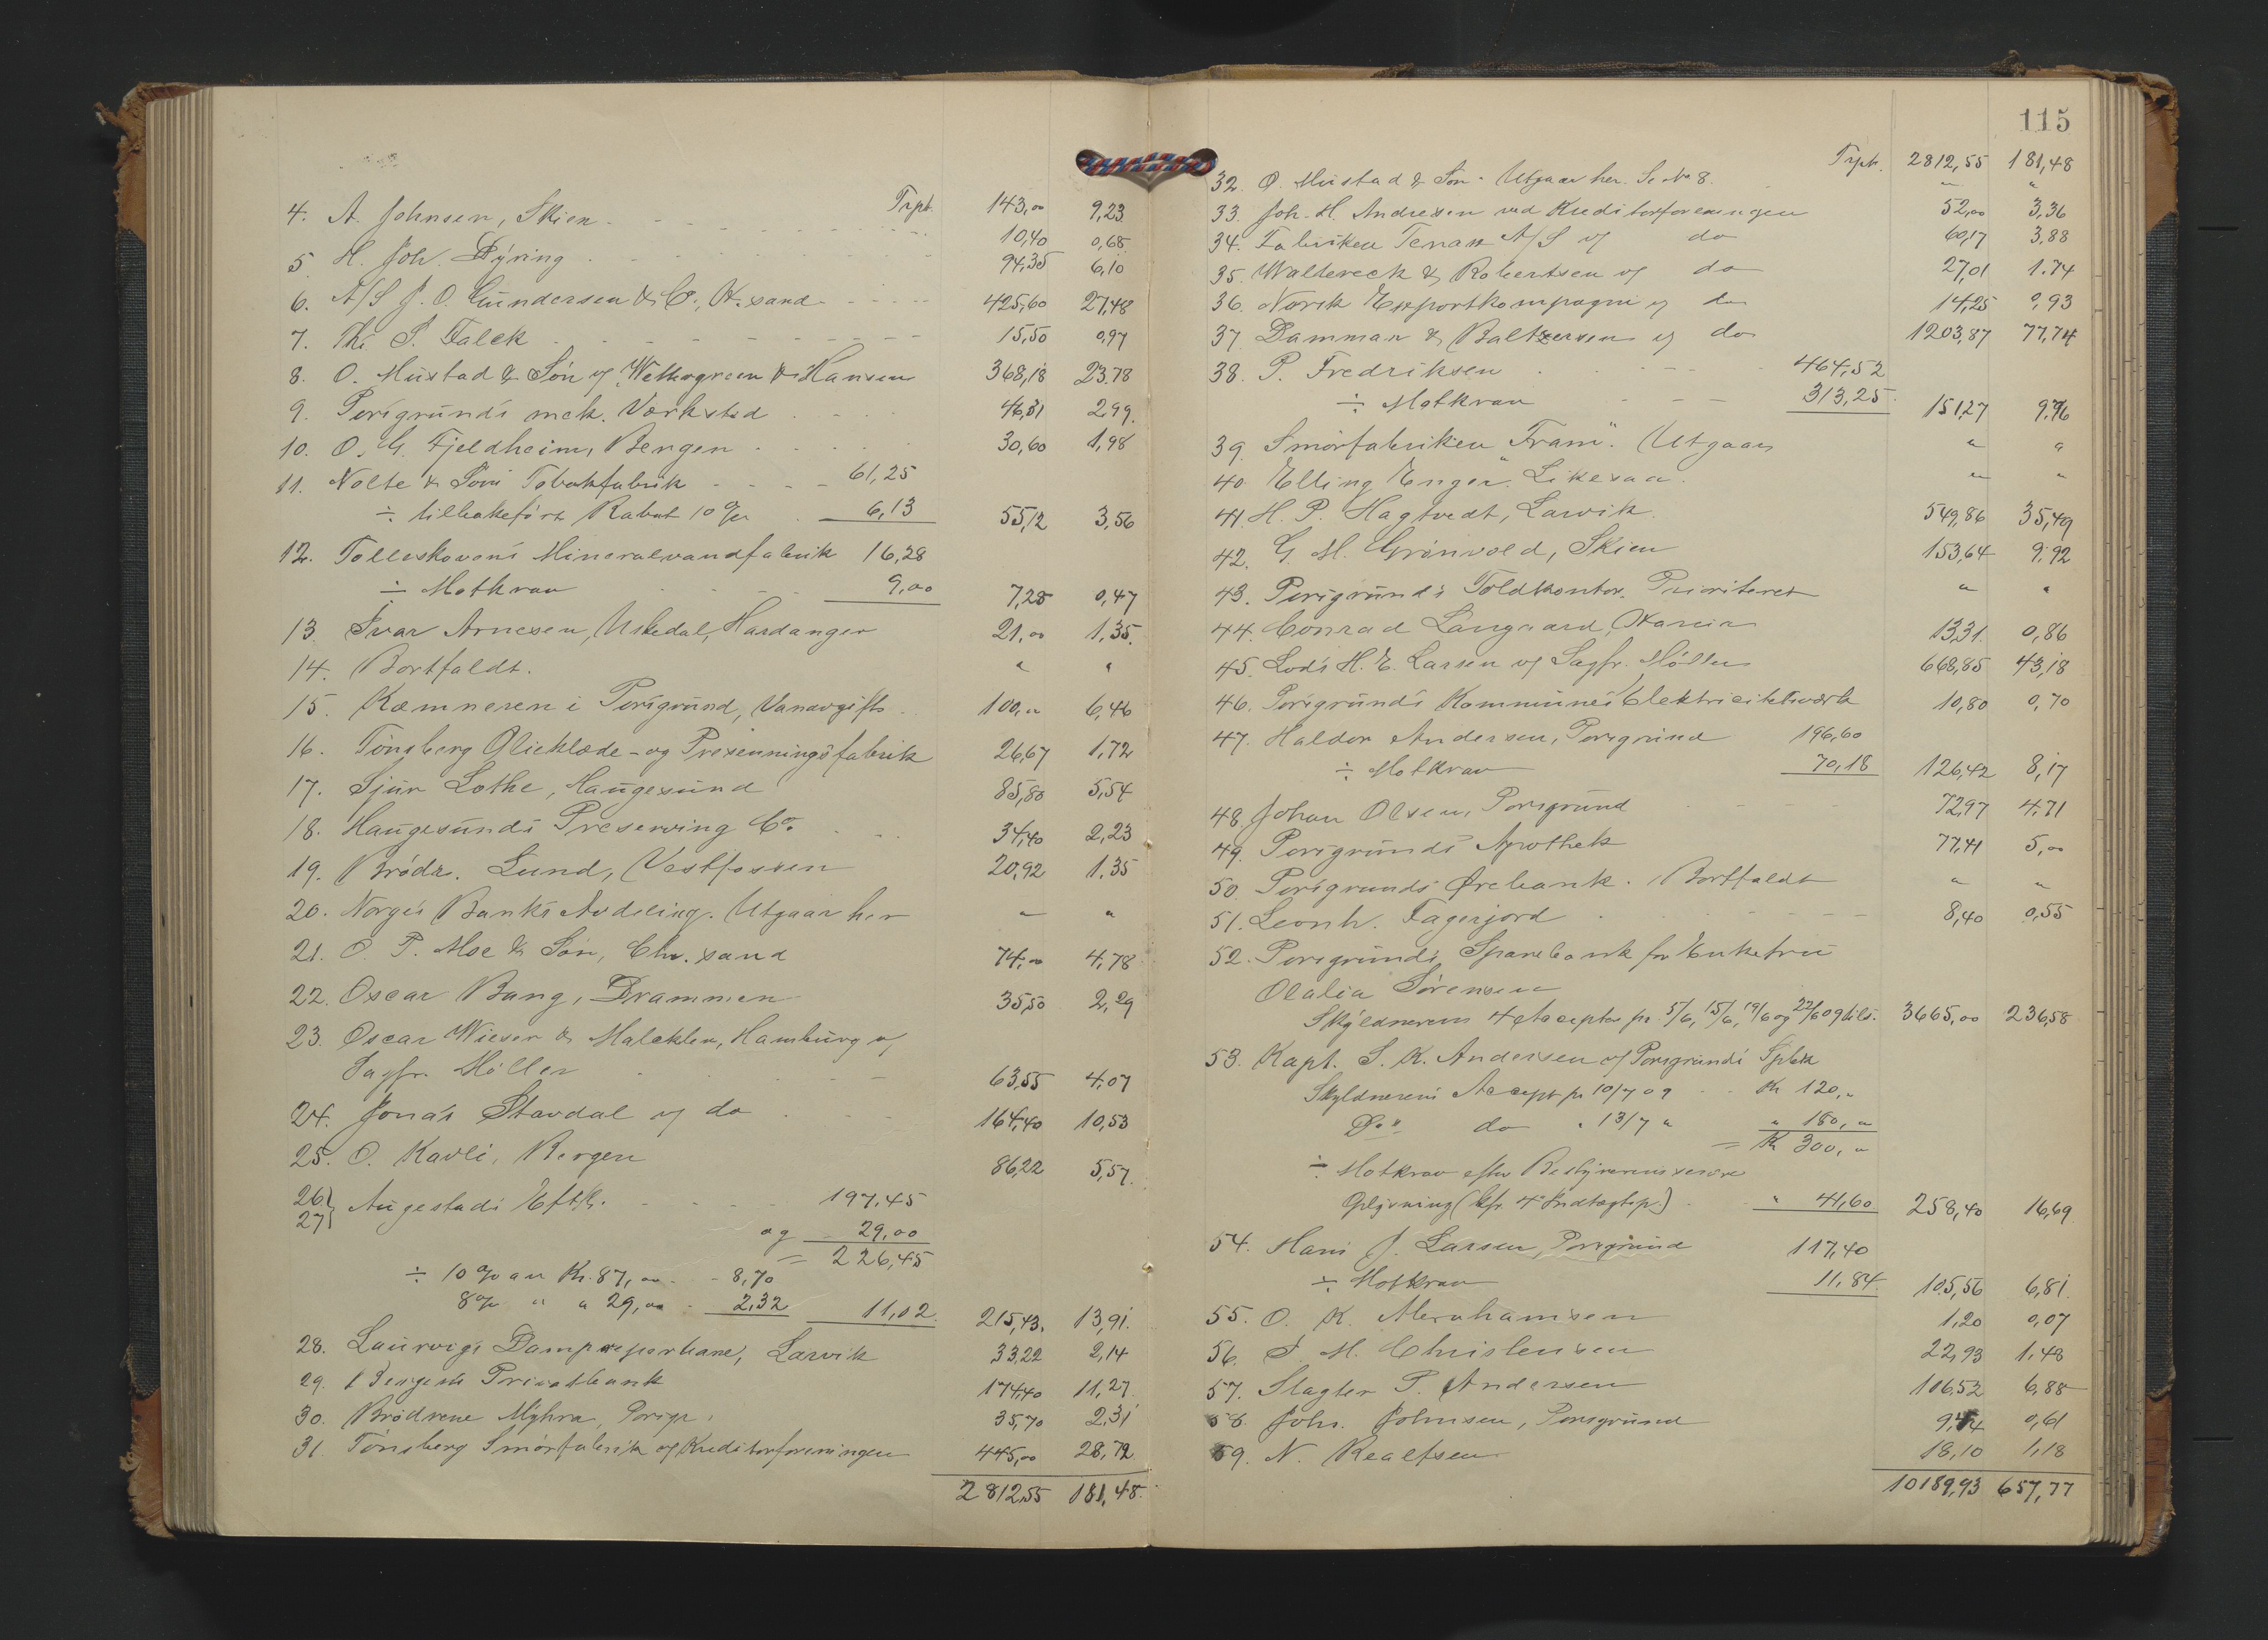 Trpt. 143,00 9,23
4. A. Johnsen, Skien 10,40 0,68
5. H. Joh. Dyring 94,35 6,10
6. A/S J. O. Gundersen & Co, K.sand 425,60 27,48
7. Th. S. Falck 15,50 0,97
8. O. Mustad & Søn og Wettergreen & Hansen 368,18 23.78
9. Porsgrunds mek. Værksted 46,31 2,99
10. O. G. Fjeldheim, Bergen 30,60 1,98
11. Nolte & Søns Tobakfabrik 61,25
÷ tilbakeført Rabat 10 % 6,13 55,12 3,56
12. Tolleskovens Mineralvandfabrik 16,28
÷ Motkrav 9,00 7,28 0,47
13. Ivar Arnesen, Uskedal, Hardanger 21,00 1,35.
14. Bortfaldt. " "
15. Kæmneren i Porsgrund, Vanavgift 100,00 6,46
16. Tönsberg Olieklæde- og Presenningsfabrik 26,67 1,72
17. Sjur Lothe, Haugesund 85,80 5,54
18. Haugesunds Preserving Co. 34,40 2,23
19. Brödr. Lund, Vestfossen 20,92 1.35
20. Norges Banks Avdeling. Utgaar her " "
21. O. P. Moe & Søn, Chr.sand 74,00 4,78
22. Oscar Bang, Drammen 35,50 2,29
23. Oscar Wieser & Malchlen, Hamburg og
Sagfr. Møller 63,55 4,07
24. Jonas Stavdal og do 164,40 10,53
25. O. Kavli, Bergen 86,22 5,57
26 27} Augestads Eftf. 197,45
og 29,00
= 226,45
÷ 10 % av Kr. 87,00 8,70
8 % " " 29,00 2,32 11,02 215,43 13,91
28. Laurvigs Dampveperbane, Larvik 33,22 2,14
29. Bergens Privatbank 174,40 11,27
30. Brødrene Myhra, Porsgr. 35,70 2,31
31. Tönsberg Smørfabrik og Kreditorforeningen 445,00 28,72
2812,55 181,48.
115
Trpt. 2812,55 181,48
32. O. Mustad & Søn. Utgaar her. Se No 8. " "
33. Joh. H. Andresen ved Kreditorforeningen 52,00 3,36
34. Fabriken Tenax A/S og do 60,17 3,88
35. Waltereck & Robertsen og do 27,01 1.74
36. Norsk Exportkompagni og do 14,25 0,93
37. Damman & Baltzersen og do 1203,87 77,74
38. P. Fredriksen 464,52
÷ Motkrav 313,25 151,27 9,76
39. Smørfabriken "Fram". Utgaar " "
40. "Elling Enger". Likesaa. " "
41. H. P. Hagtvedt, Larvik 549,86 35,49
42. G. M. Grønvold, Skien 153,64 9,92
43. Porsgrunds Toldkontor. Prioritert " "
44. Conrad Langaard, Kr.ania 13,31 0,86
45. Lods H. E. Larsen og Sagfr. Møller 668,85 43,18
46. Porsgrunds Kommunes Elektricitetsværk 10,80 0,70
47. Haldor Andersen, Porsgrund 196,60
÷ Motkrav 70,18 126,42 8,17
48. Johan Olsen, Porsgrund 72,97 4,71
49. Porsgrunds Apothek 77,41 5,00
50. Porsgrunds Ørebank. Bortfaldt " "
51. Leonh. Fagerjord 8,40 0,55
52. Porsgrunds Sparebank for Enkefru
Olalia Sørensen
Skyldnerens 4 Accepter pr. 5/6, 15/6, 19/6 og 22/6 09 tils. 3665,00 236,58
53. Kapt. S. K. Andersen og Porsgrunds Spbk
Skyldnerens Accept pr 10/7 09 Kr 120,"
Do " do " 13/7 " " 180,"
= Kr 300,"
÷ Motkrav efter Bestyrerens senere
Oplysning (kfr 4e Indtægtsp.) " 41,60 258,40 16,69
54. Hans J. Larsen, Porsgrund 117,40
÷ Motkrav 11,84 105,56 6,81
55. O. K. Abrahamsen 1,20 0,07
56. S. M. Christensen 22,93 1,48
57. Slagter P. Andersen 106,52 6,88
58. Johs. Johnsen, Porsgrund 9,44 0,61
59. N. Realfsen 18,10 1,18
10189,93 657,77